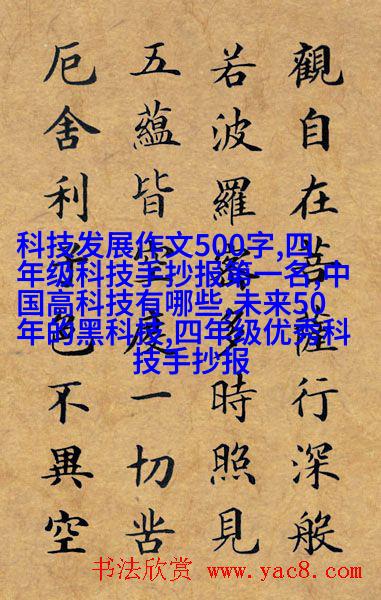 觀自在菩薩行深般
若波羅蜜多時照見
五蘊皆空度一切苦
厄舍利子色不異空
科技发展作文500字,四
年级科技手抄报第一名,中
国高科技有哪些,未来50
年的黑科技,四年级优秀科
技手抄报
书法欣赏 www.yac8.com